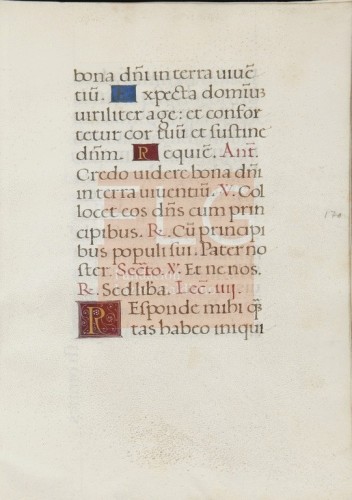 bona dñi in terra uiuē
tiū. Expecta dominū
uiriliter age: et confor
tetur cor tuū et sustine
dñm. Requiē. Añt.
Credo uidere bona dñi
in terra uiuentiū. V. Col
locet eos dñs cum prin
cipibus. R. Cū principi
bus populi sui. Pater no
ster. Secto. V. Et ne nos.
R. Sed liba. Lec. iiij.
Responde mihi q̃
tas habeo iniqui
170
FLG